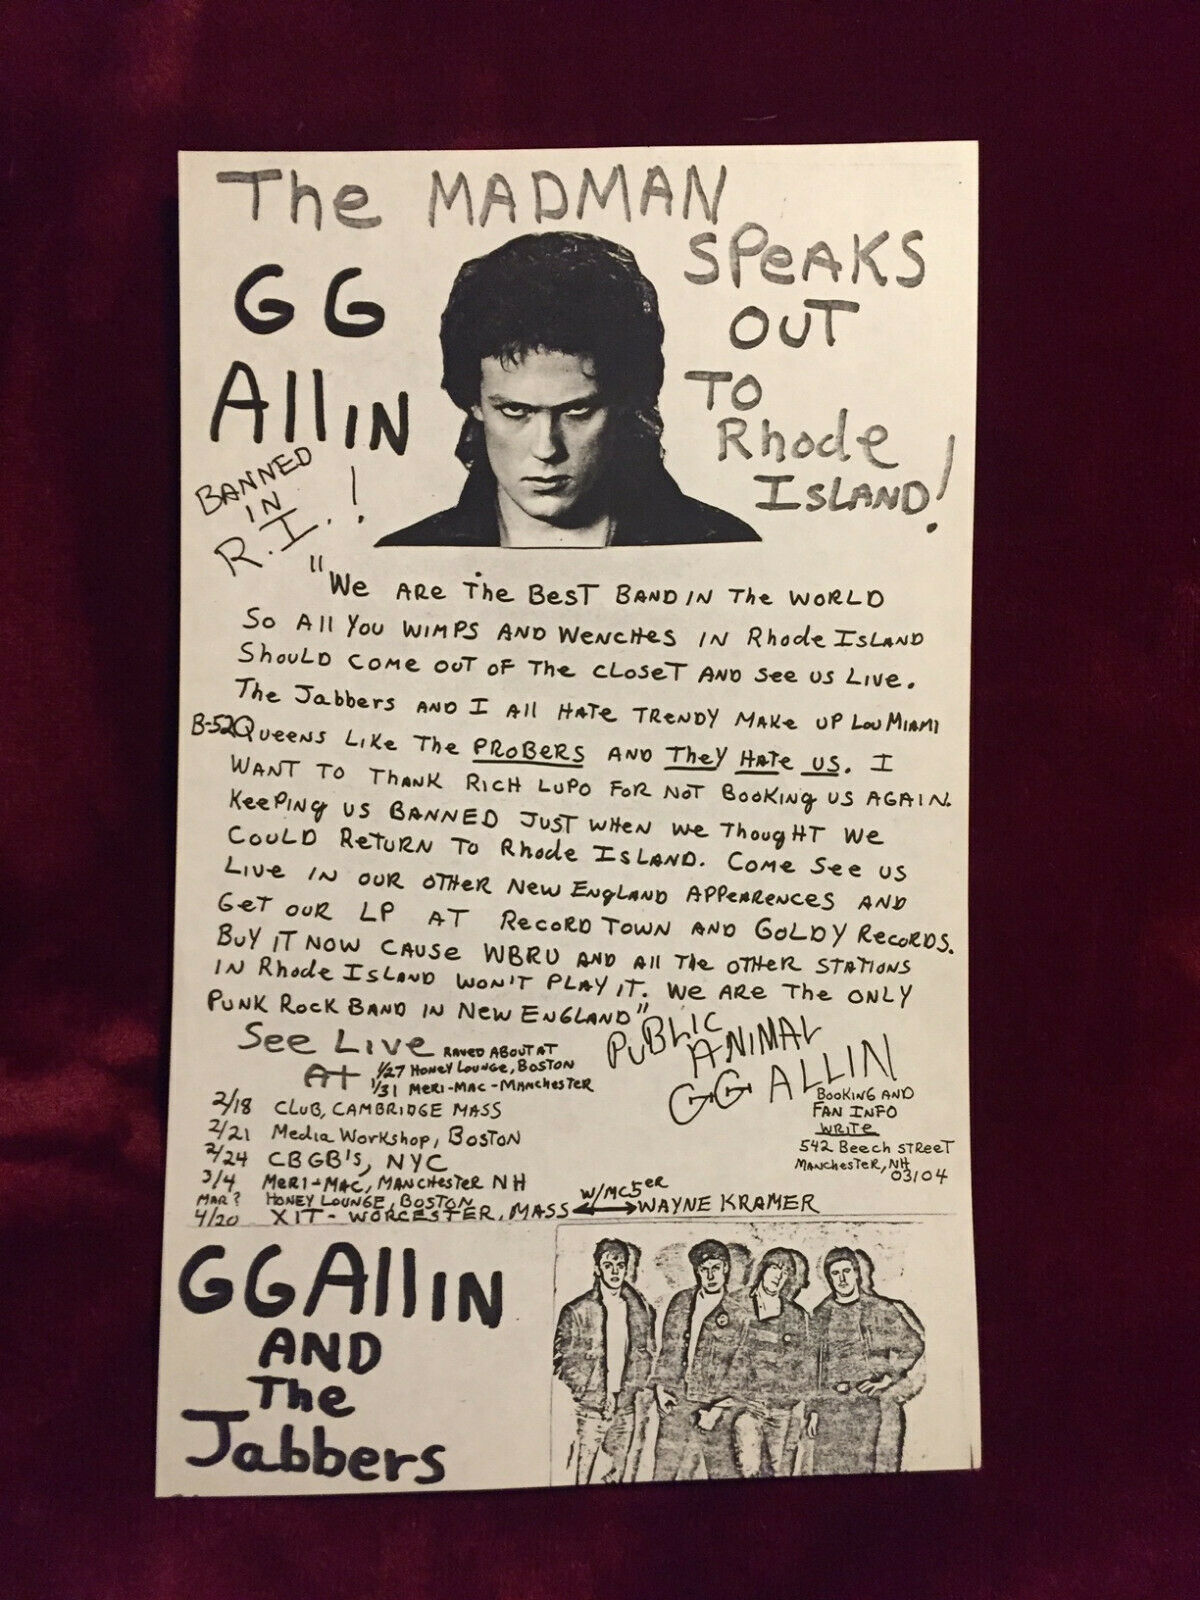 The MADMAN
SPEAKS
OUT
TO
Rhode
ISLAND!
GG
Allin
BANNED
IN
R.I.!
"We ARE The BEST BAND IN The WORLD
So All You WIMPS AND WENCHES IN Rhode ISLAND
Should COME OUT OF The CLOSET AND See US LIVE.
The Jabbers AND I All HATE TRENDY MAKE UP Lou MIAMI
B-52 Queens LIKE The PROBERS AND They HATE US. I
WANT TO THANK RICH LUPO FOR NOT BOOKING US AGAIN.
KEEPING US BANNED JUST WHEN WE ThougHT WE
COULD RETURN TO Rhode ISLAND. COME See US
LIVE IN OUR OTHER New ENGLAND APPEARENCES AND
GET OUR LP AT RECORD TOWN AND GOLDY RECORDS.
BUY IT NOW CAUSE WBRU AND All The OTHER STATIONS
IN Rhode ISLAND WON'T PLAY IT. We ARE The ONLY
PUNK ROCK BAND IN New ENGLAND"
See LIVE RAVED ABOUT AT
AT 1/27 HONEY LOUNGE, BOSTON
1/31 MERI-MAC-MANCHESTER
2/18 CLUB, CAMBRIDGE MASS
2/21 Media Workshop, BOSTON
2/24 CBGB's, NYC
3/4 MERI-MAC, MANCHESTER NH
MAR? HONEY LOUNGE, BOSTON
4/20 XIT - WORCESTER, MASS W/MC5er WAYNE KRAMER
PUBLIC
ANIMAL
GG ALLIN
BOOKING AND
FAN INFO
WRITE
542 Beech STReeT
MANCHESTER, NH
03104
GG Allin
AND
The
Jabbers